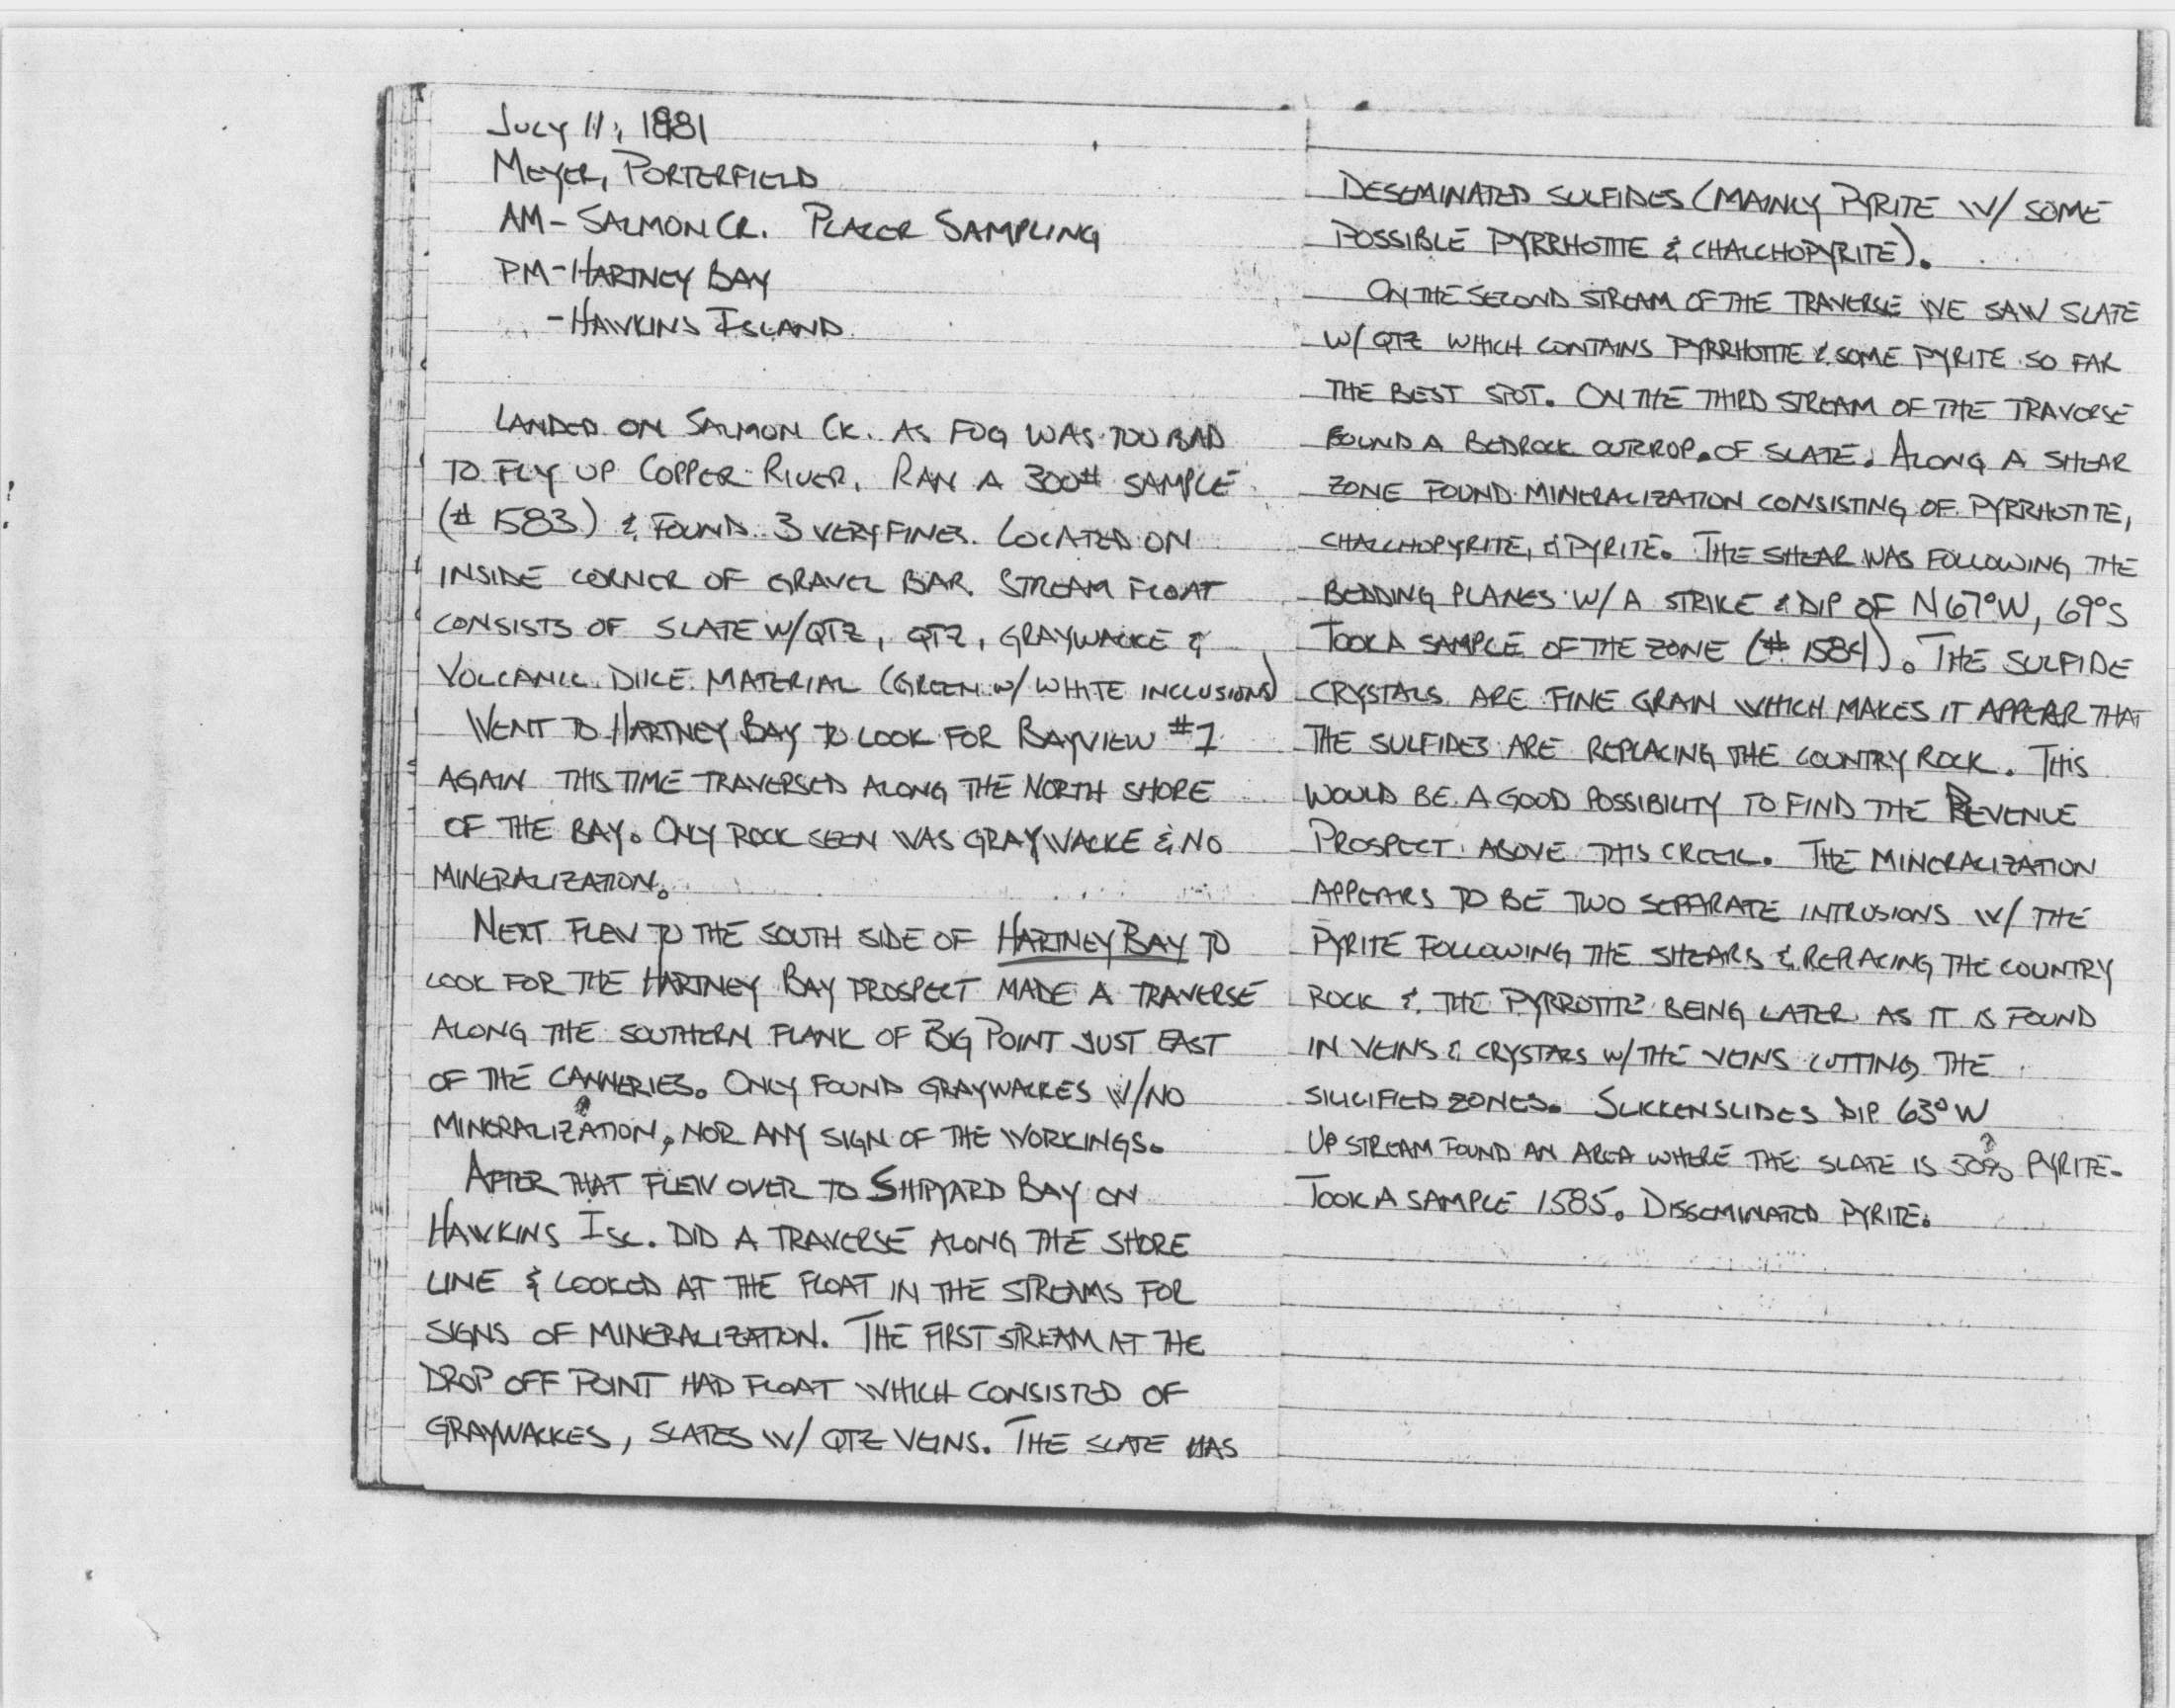 JULY 11, 1981
MEYER, PORTERFIELD
AM - SALMON CR. PLACER SAMPLING
PM - HARTNEY BAY
- HAWKINS ISLAND
LANDED ON SALMON CK. AS FOG WAS TOO BAD
TO FLY UP COPPER RIVER. RAN A 300# SAMPLE
(# 1583) & FOUND 3 VERY FINES. LOCATED ON
INSIDE CORNER OF GRAVEL BAR. STREAM FLOAT
CONSISTS OF SLATE W/QTZ, QTZ, GRAYWACKE &
VOLCANIC DIKE MATERIAL (GREEN W/ WHITE INCLUSIONS)
WENT TO HARTNEY BAY TO LOOK FOR BAYVIEW #1
AGAIN THIS TIME TRAVERSED ALONG THE NORTH SHORE
OF THE BAY. ONLY ROCK SEEN WAS GRAYWACKE & NO
MINERALIZATION.
NEXT FLEW TO THE SOUTH SIDE OF HARTNEY BAY TO
LOOK FOR THE HARTNEY BAY PROSPECT MADE A TRAVERSE
ALONG THE SOUTHERN FLANK OF BIG POINT JUST EAST
OF THE CANNERIES. ONLY FOUND GRAYWACKES W/NO
MINERALIZATION, NOR ANY SIGN OF THE WORKINGS.
AFTER THAT FLEW OVER TO SHIPYARD BAY ON
HAWKINS ISL. DID A TRAVERSE ALONG THE SHORE
LINE & LOOKED AT THE FLOAT IN THE STREAMS FOR
SIGNS OF MINERALIZATION. THE FIRST STREAM AT THE
DROP OFF POINT HAD FLOAT WHICH CONSISTED OF
GRAYWACKES, SLATES W/ QTZ VEINS. THE SLATE HAS
DESEMINATED SULFIDES (MAINLY PYRITE W/ SOME
POSSIBLE PYRRHOTITE & CHALCHOPYRITE).
ON THE SECOND STREAM OF THE TRAVERSE WE SAW SLATE
W/ QTZ WHICH CONTAINS PYRRHOTITE & SOME PYRITE SO FAR
THE BEST SPOT. ON THE THIRD STREAM OF THE TRAVERSE
FOUND A BEDROCK OUTCROP. OF SLATE. ALONG A SHEAR
ZONE FOUND MINERALIZATION CONSISTING OF PYRRHOTITE,
CHALCHOPYRITE, & PYRITE. THE SHEAR WAS FOLLOWING THE
BEDDING PLANES W/ A STRIKE & DIP OF N67°W, 69°S
TOOK A SAMPLE OF THE ZONE (# 1584). THE SULFIDE
CRYSTALS ARE FINE GRAIN WHICH MAKES IT APPEAR THAT
THE SULFIDES ARE REPLACING THE COUNTRY ROCK. THIS
WOULD BE A GOOD POSSIBILITY TO FIND THE REVENUE
PROSPECT ABOVE THIS CREEK. THE MINERALIZATION
APPEARS TO BE TWO SEPARATE INTRUSIONS W/ THE
PYRITE FOLLOWING THE SHEARS & REPLACING THE COUNTRY
ROCK & THE PYRROTITE BEING LATER AS IT IS FOUND
IN VEINS & CRYSTALS W/ THE VEINS CUTTING THE
SILICIFIED ZONES. SLICKENSLIDES DIP 63° W
UP STREAM FOUND AN AREA WHERE THE SLATE IS 50%? PYRITE.
TOOK A SAMPLE 1585. DISSEMINATED PYRITE.